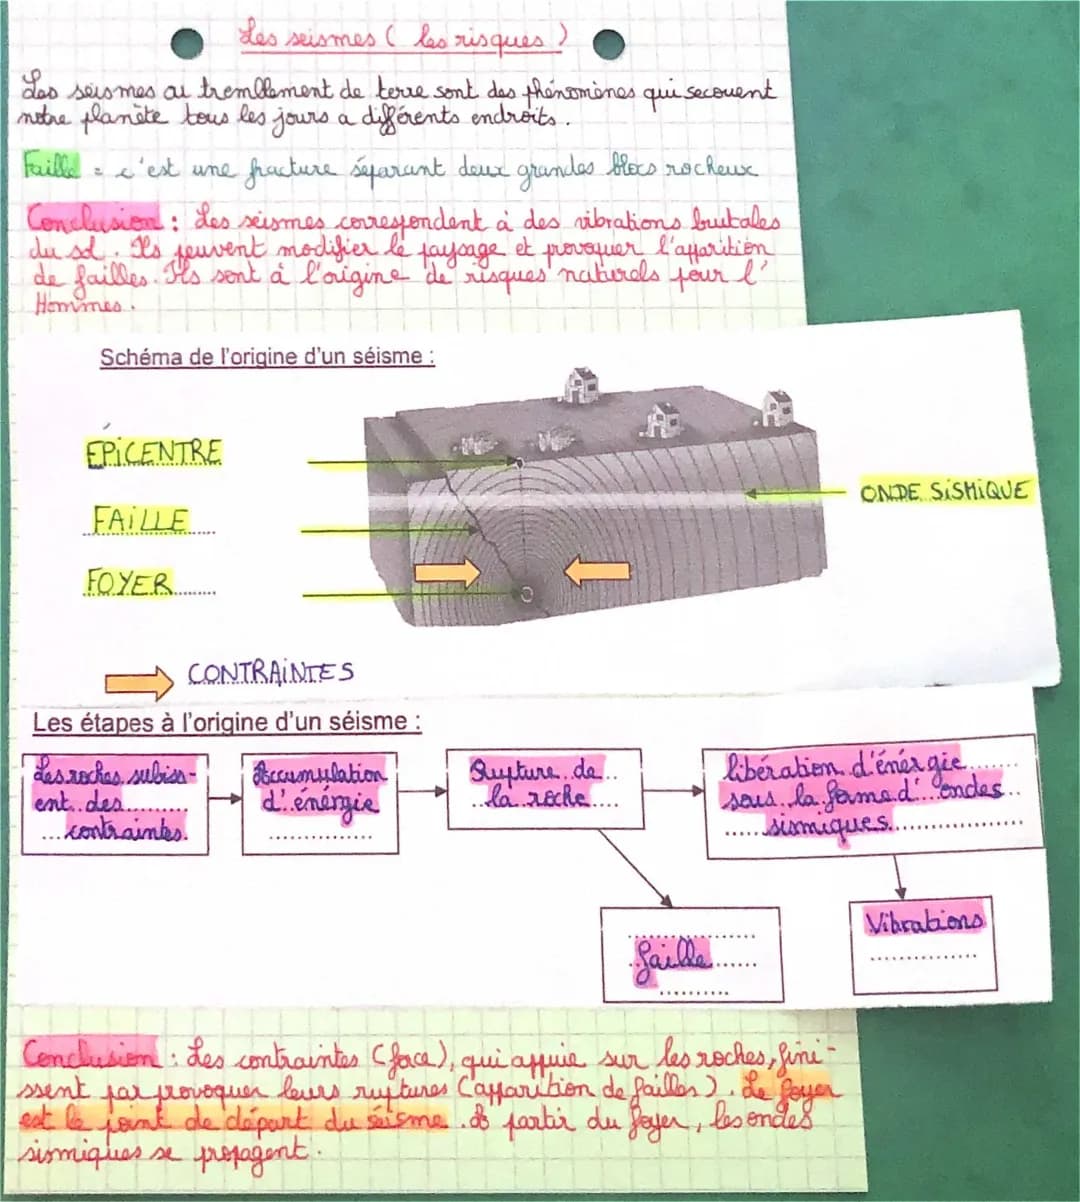 Les seismes ( les risques )
Les seismes ou tremblement de terre sont des phénomènes qui secouent
notre planète tous les jours a différents endroits.
Faille = c'est une fracture séparant deux grandes blocs rocheux
Conclusion : Les séismes correspondent à des vibrations brutales
du sol. Ils peuvent modifier le paysage et provoquer l'apparition
de failles. Ils sont à l'origine de risques naturels pour l'
Hommes.
Schéma de l'origine d'un séisme :
EPICENTRE
ONDE SISMIQUE
FAILLE
FOYER
CONTRAINTES
Les étapes à l'origine d'un séisme :
Les roches subiss-
ent des
contraintes.
Accumulation
d'énergie
Rupture de
la roche
libération d'énergie
sous la forme d'ondes
sismiques.
faille
Vibrations
Conclusion : Les contraintes (force), qui appuie sur les roches, fini-
ssent par provoquer leurs ruptures (apparition de failles). Le foyer
est le point de départ du séisme. A partir du foyer, les ondes
sismiques se propagent.